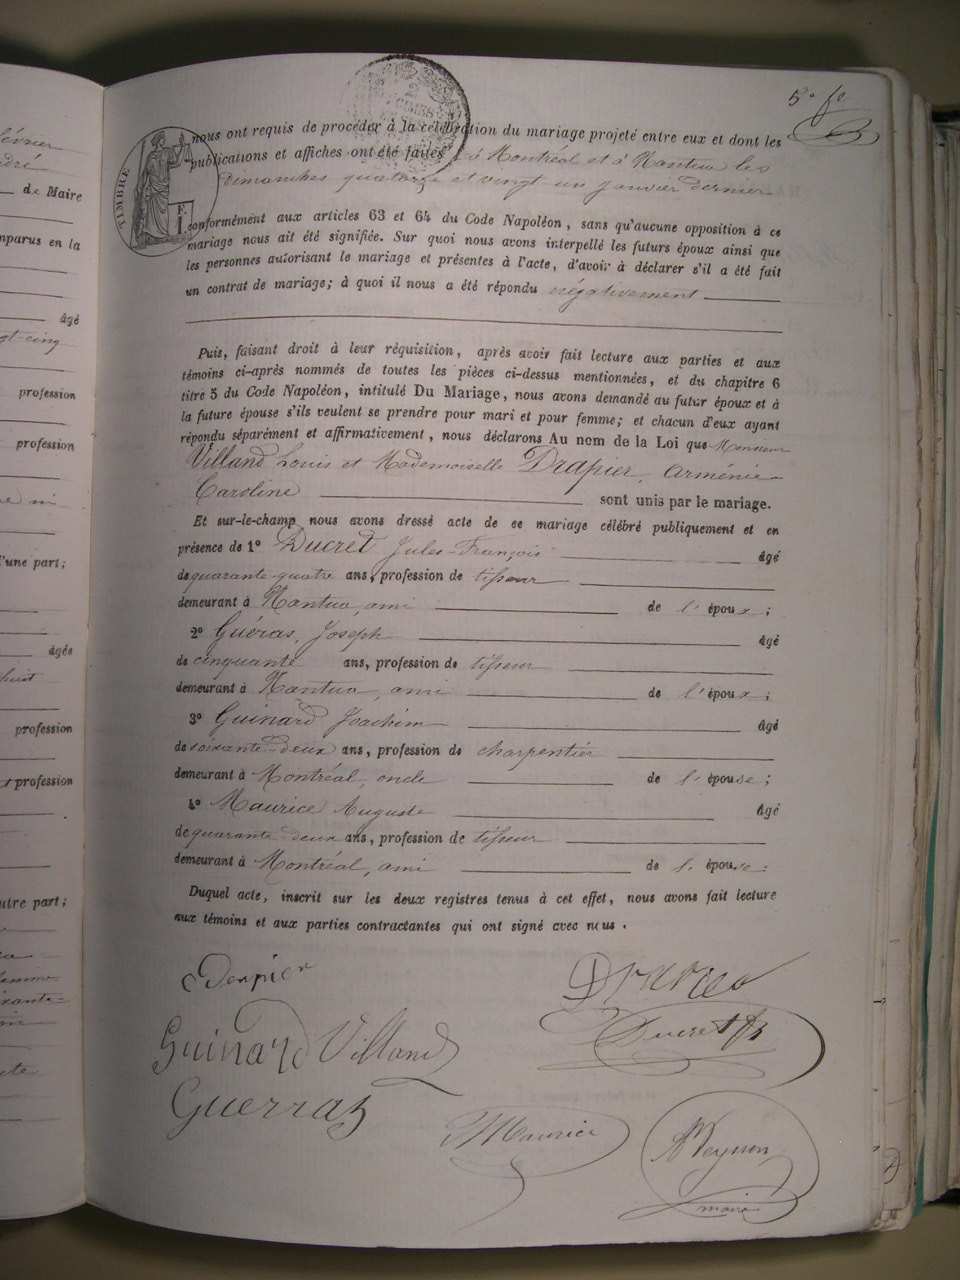 évrier
de Maire
mparus en la
âgé
gt-cinq
profession
profession
d'une part;
âgée
huit
profession
profession
autre part;
5e fo
TIMBRE
F.
1
nous ont requis de procéder à la célébration du mariage projeté entre eux et dont les
publications et affiches ont été faites à Montréal et à Nantua les
Dimanches quatorze et vingt-un Janvier dernier
conformément aux articles 63 et 64 du Code Napoléon, sans qu'aucune opposition à ce
mariage nous ait été signifiée. Sur quoi nous avons interpellé les futurs époux ainsi que
les personnes autorisant le mariage et présentes à l'acte, d'avoir à déclarer s'il a été fait
un contrat de mariage; à quoi il nous a été répondu négativement
Puis, faisant droit à leur réquisition, après avoir fait lecture aux parties et aux
témoins ci-après nommés de toutes les pièces ci-dessus mentionnées, et du chapitre 6
titre 5 du Code Napoléon, intitulé Du Mariage, nous avons demandé au futur époux et à
la future épouse s'ils veulent se prendre pour mari et pour femme; et chacun d'eux ayant
répondu séparément et affirmativement, nous déclarons Au nom de la Loi que Monsieur
Villand Louis et Mademoiselle Drapier, Arménie
Caroline sont unis par le mariage.
Et sur-le-champ nous avons dressé acte de ce mariage célébré publiquement et en
présence de 1° Ducret Jules-François âgé
de quarante-quatre ans, profession de tisseur
demeurant à Nantua, ami de l'époux;
2° Guéras, Joseph âgé
de cinquante ans, profession de tisseur
demeurant à Nantua, ami de l'époux;
3° Guinard Joachim âgé
de soixante-deux ans, profession de charpentier
demeurant à Montréal, oncle de l'épouse;
4° Maurice Auguste âgé
de quarante-deux ans, profession de tisseur
demeurant à Montréal, ami de l'épouse.
Duquel acte, inscrit sur les deux registres tenus à cet effet, nous avons fait lecture
aux témoins et aux parties contractantes qui ont signé avec nous.
Guinard Villand Ducret
Guerraz
Maurice
maire